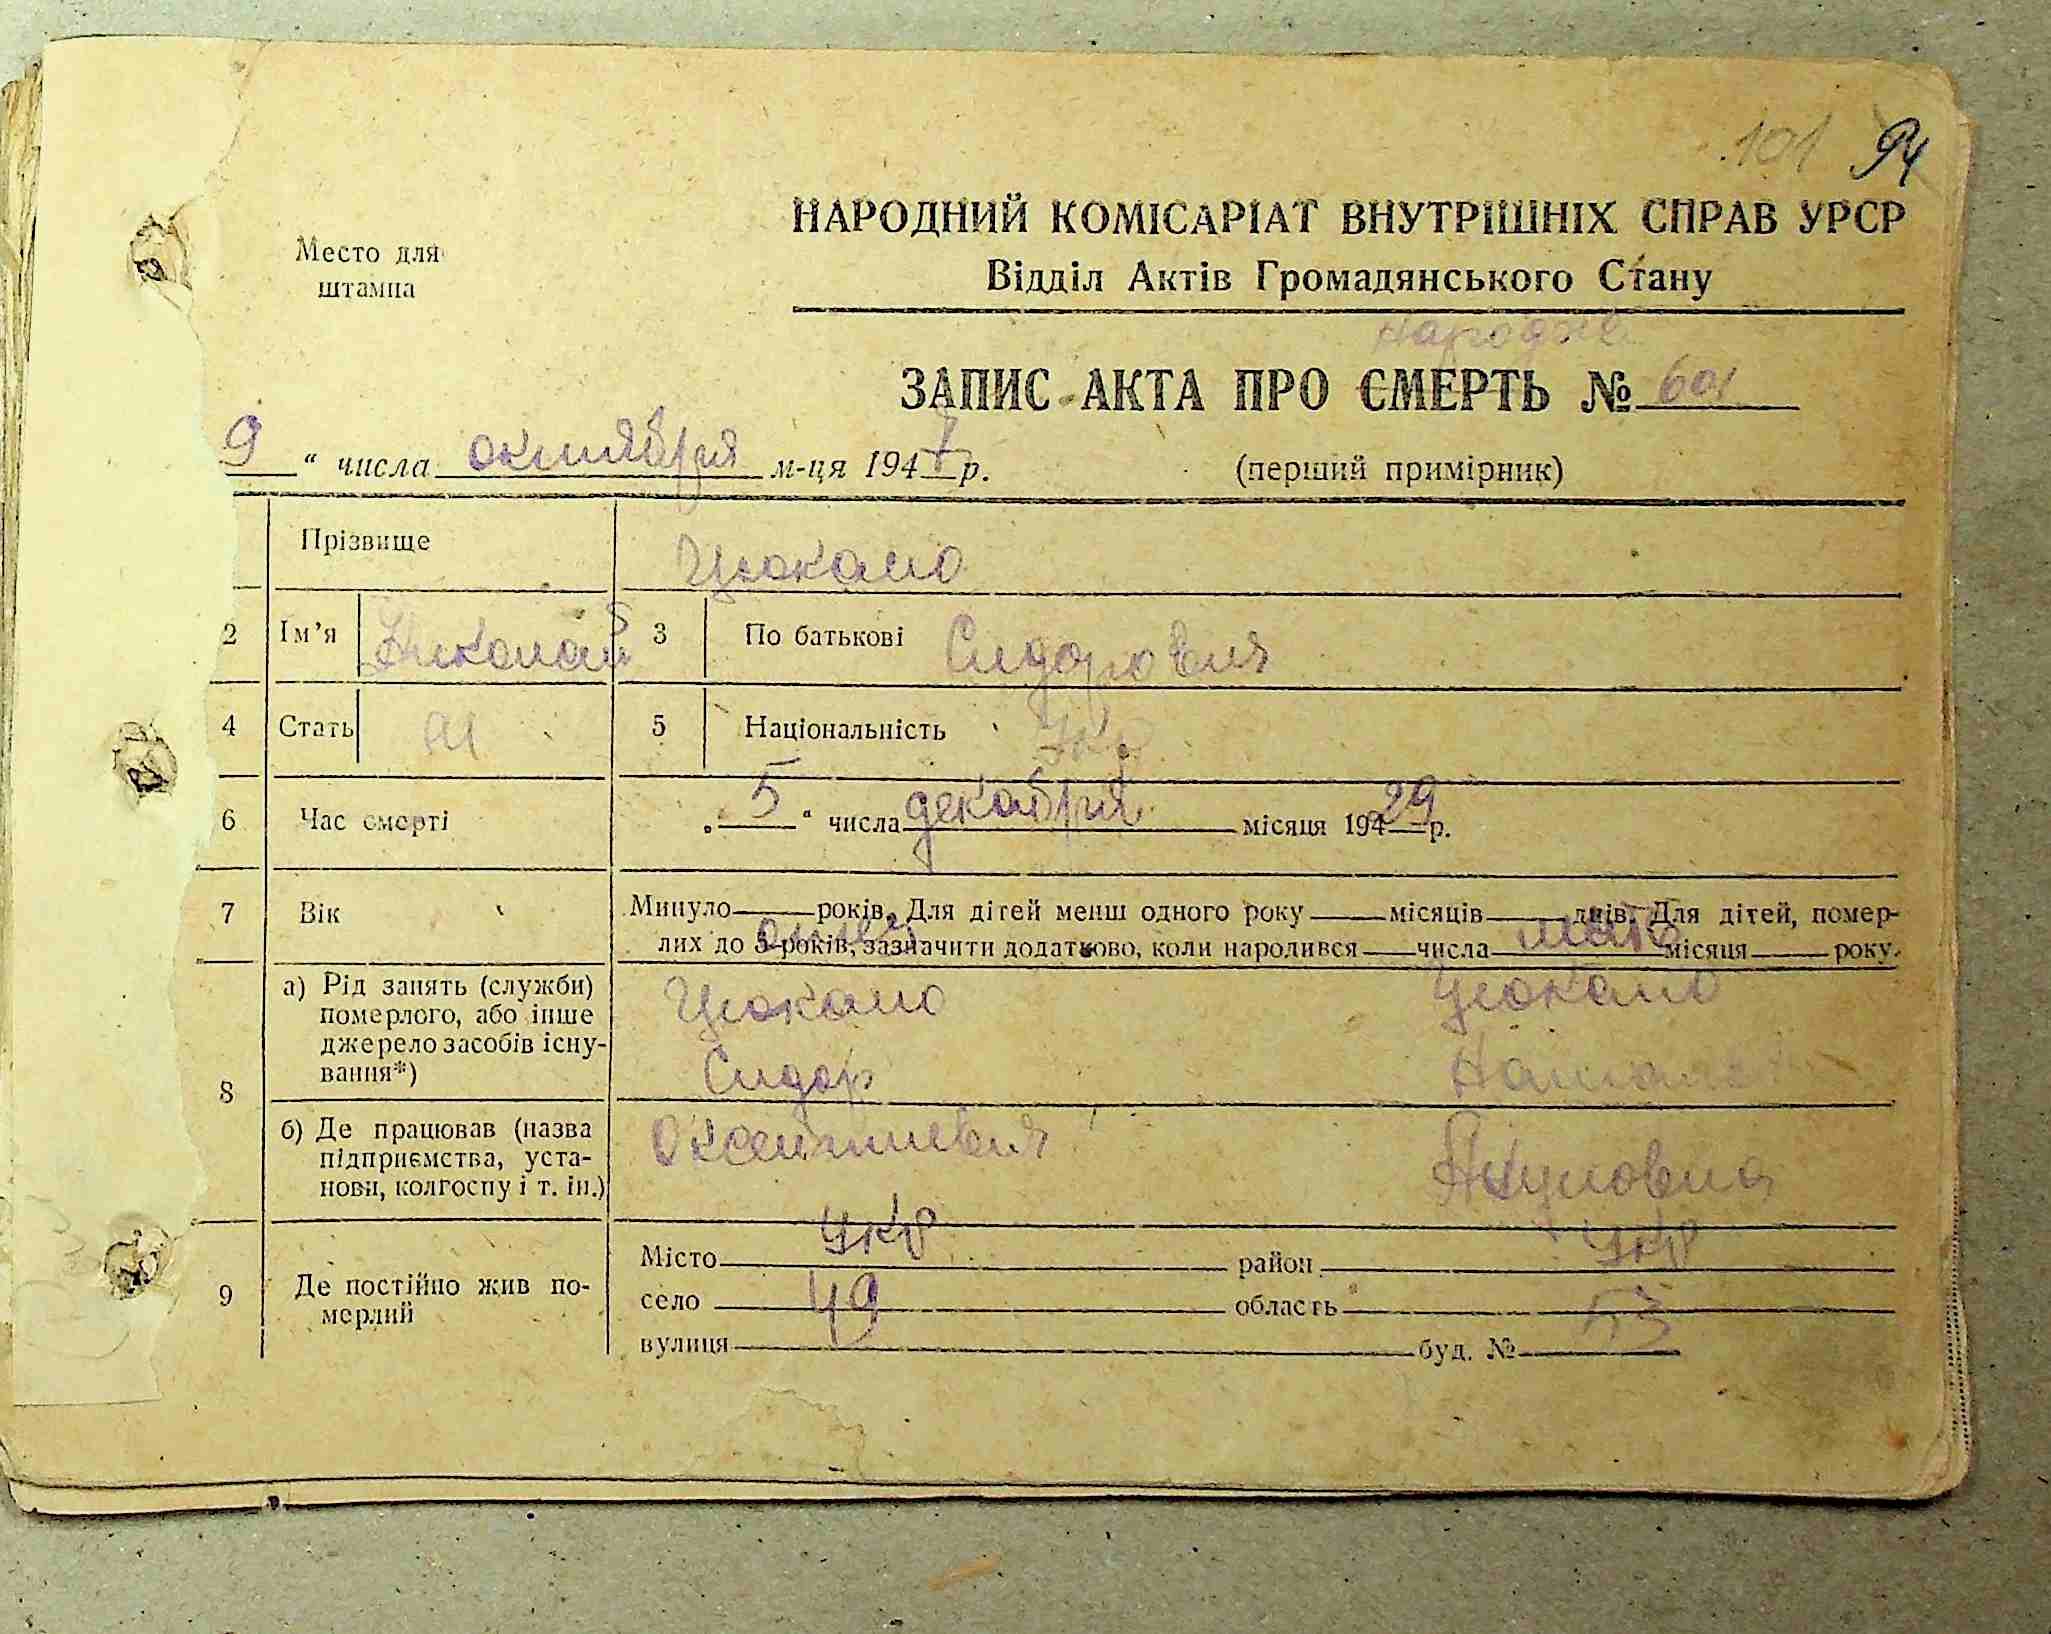 101 94
Место для
штампа
НАРОДНИЙ КОМІСАРІАТ ВНУТРІШНІХ СПРАВ УРСР
Відділ Актів Громадянського Стану
Народже
ЗАПИС АКТА ПРО СМЕРТЬ № 601
9 " числа октября м-ця 1947 р.
(перший примірник)
Прізвище Цюкало
2 Ім'я Николай 3 По батькові Сидорович
4 Стать М 5 Національність Укр
6 Час смерті „ 5 " числа декабря місяця 194 29 р.
7 Вік Минуло року років. Для дітей менш одного року місяців днів. Для дітей, помер-
лих до 5 років, зазначити додатково, коли народився числа місяця року.
отец мать
8 а) Рід занять (служби)
померлого, або інше
джерело засобів існу-
вання*)
Цюкало Цюкало
Сидор Наталья
б) Де працював (назва
підприємства, уста-
нови, колгоспу і т. ін.)
Оксентиевич Акумовна
Укр Укр
9 Де постійно жив по-
мерлий
Місто район
село 49 область 53
вулиця буд. №